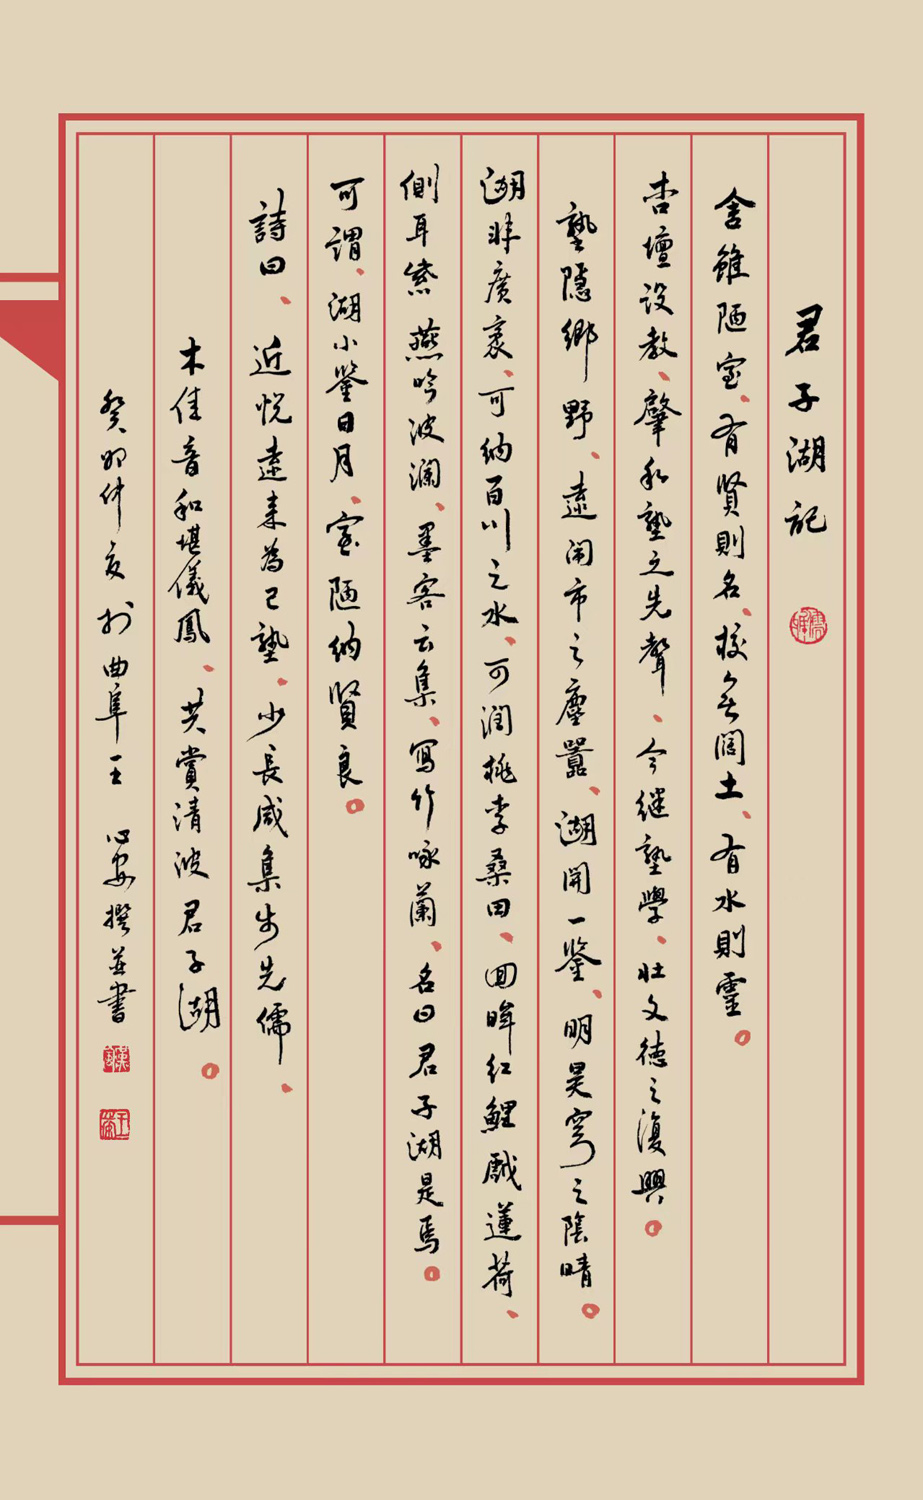 君子湖記
舍雖陋室、有賢則名、校無闊土、有水則靈。
杏壇設教、肇私塾之先聲、今繼塾學、壯文德之復興。
塾隱鄉野、遠鬧市之塵囂、湖開一鑒、明昊穹之陰晴。
湖非廣袤、可納百川之水、可潤桃李桑田、回眸紅鯉戲蓮荷、
側耳紫燕吟波瀾、墨客云集、寫竹咏蘭、名曰君子湖是焉。
可謂、湖小鑒日月、室陋納賢良。
詩曰、近悅遠來為己塾、少長咸集步先儒、
木佳音和堪儀鳳、共賞清波君子湖。
癸卯仲夏於曲阜王心安撰並書